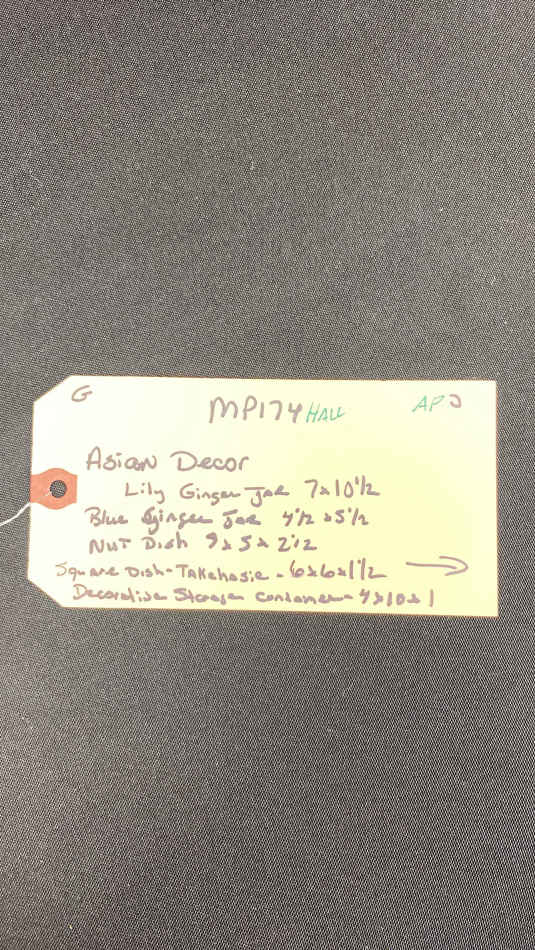 G MP174 HALL AP J
Asian Decor
Lily Ginger Jar 7x10 1/2
Blue Ginger Jar 4 1/2 x 5 1/2
Nut Dish 9 x 5 x 2 1/2
Square Dish - Takahasie - 6x6x1 1/2 →
Decorative Storage Container - 4x10x1